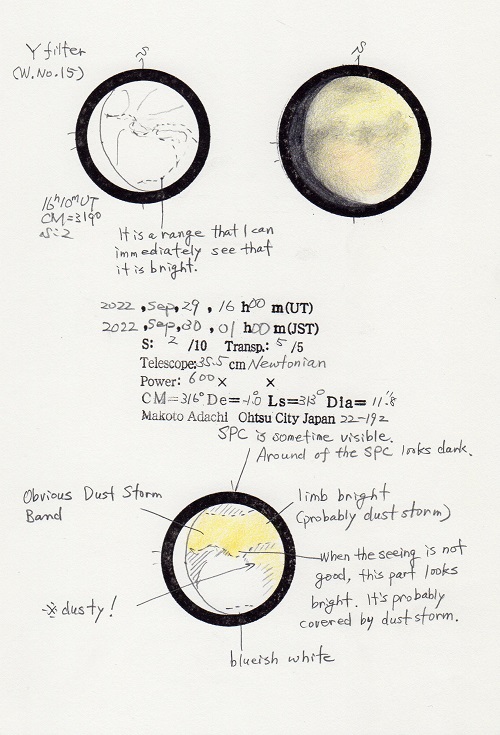 Y filter
(W.No.15)
S
S
16h10mUT
CM=319°
S=2
It is a range that I can
immediately see that
it is bright.
2022 , Sep, 29 , 16 h00 m(UT)
2022 , Sep, 30 , 01 h00 m(JST)
S: 2 /10 Transp.: 5 /5
Telescope: 35.5 cm Newtonian
Power: 600 × ×
CM=316° De=-1.0 Ls=313° Dia= 11".8
Makoto Adachi Ohtsu City Japan 22-192
SPC is sometime visible.
Around of the SPC looks dark.
Obvious Dust Storm
Band
limb bright
(probably dust storm)
When the seeing is not
good, this part looks
bright. It's probably
covered by dust storm.
※ dusty!
blueish white